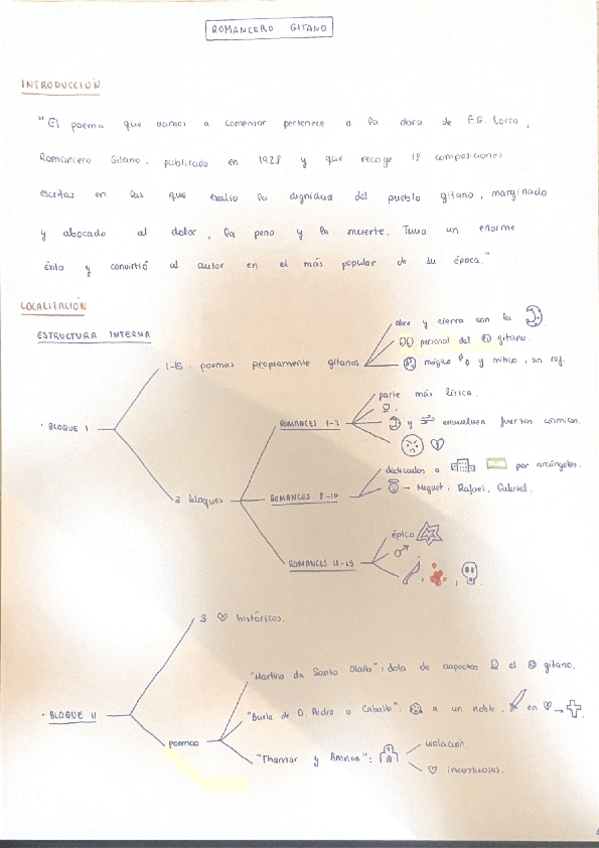 ROMANCERO GITANO
INTRODUCCIÓN
"El poema que vamos a comentar pertenece a la obra de F.G. Lorca,
Romancero Gitano, publicado en 1928 y que recoge 18 composiciones
escritas en las que exalta la dignidad del pueblo gitano, marginado
y abocado al dolor, la pena y la muerte. Tuvo un enorme
éxito y convirtió al autor en el más popular de su época."
LOCALIZACIÓN
ESTRUCTURA INTERNA
abre y cierra con la
personal del gitano.
1-15: poemas propiamente gitanos
mágico y mítico, sin ref.
parte más lírica.
· BLOQUE I
ROMANCES 1-7
y envuelven fuerzas cósmicas.
dedicados a por arcángeles.
3 bloques
ROMANCES 8-10
→ Miguel, Rafael, Gabriel.
épico
ROMANCES 11-15
3 históricos.
"Martirio de Santa Olalla": dota de aspectos el gitano.
· BLOQUE II
"Burla de D. Pedro a Caballo": a un noble, en →
poemas
violación.
"Thamar y Amnon":
incestuosos.